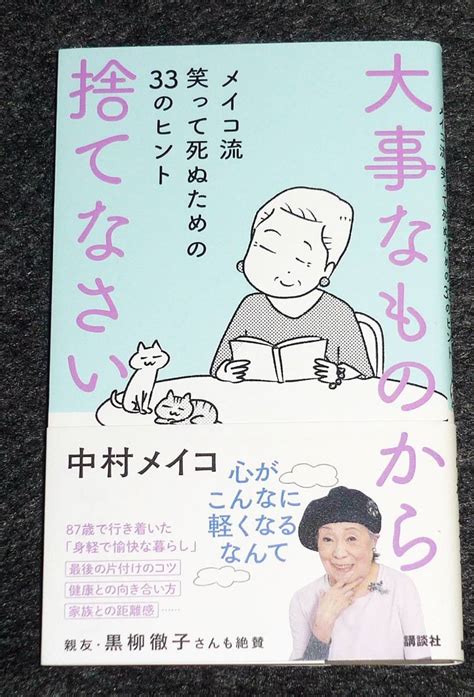 大事なものから
捨てなさい
メイコ流
笑って死ぬための
33のヒント
中村メイコ
心が
こんなに
軽くなる
なんて
87歳で行き着いた
「身軽で愉快な暮らし」
最後の片付けのコツ
健康との向き合い方
家族との距離感……
親友・黒柳徹子さんも絶賛
講談社